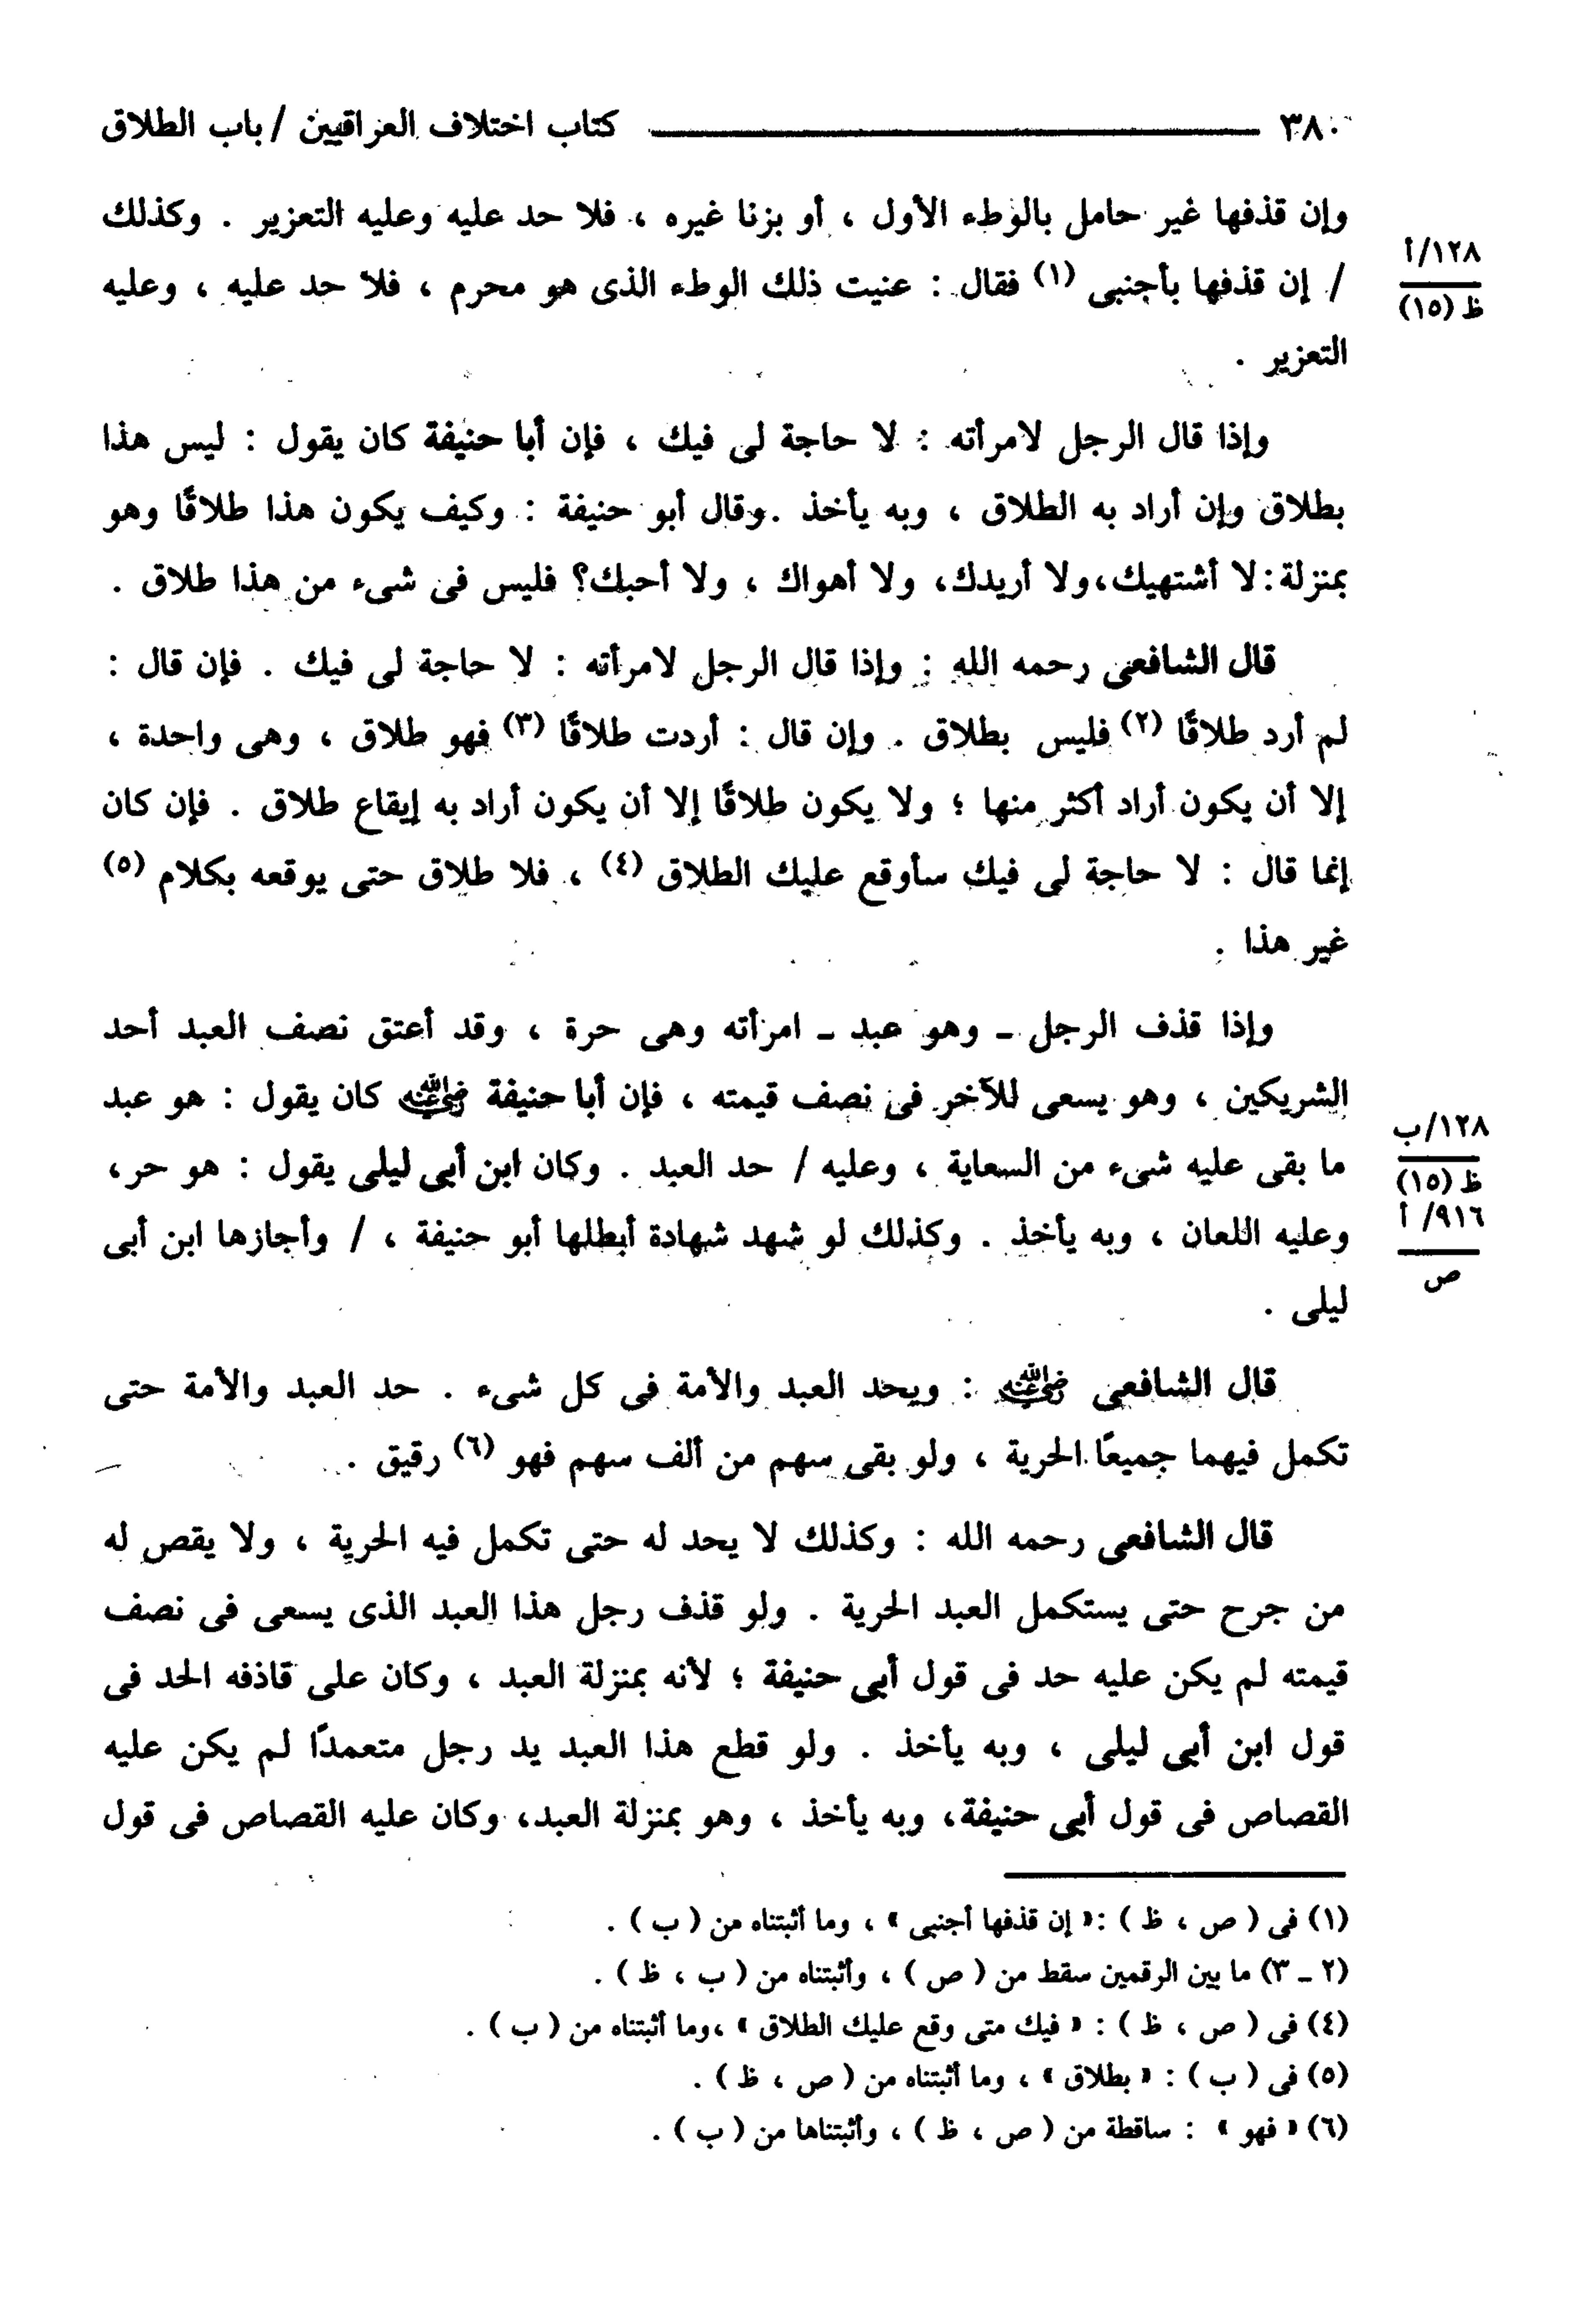 ٣٨٠ ــــــ كتاب اختلاف العراقيين / باب الطلاق
وإن قذفها غير حامل بالوطء الأول ، أو بزنا غيره ، فلا حد عليه وعليه التعزير . وكذلك
١٢٨/أ
ظ (١٥)
/ إن قذفها بأجنبى (١) فقال : عنيت ذلك الوطء الذى هو محرم ، فلا حد عليه ، وعليه
التعزير .
وإذا قال الرجل لامرأته : لا حاجة لى فيك ، فإن أبا حنيفة كان يقول : ليس هذا
بطلاق وإن أراد به الطلاق ، وبه يأخذ . وقال أبو حنيفة : وكيف يكون هذا طلاقًا وهو
بمنزلة : لا أشتهيك ، ولا أريدك ، ولا أهواك ، ولا أحبك؟ فليس فى شىء من هذا طلاق .
قال الشافعى رحمه الله : وإذا قال الرجل لامرأته : لا حاجة لى فيك . فإن قال :
لم أرد طلاقًا (٢) فليس بطلاق . وإن قال : أردت طلاقًا (٣) فهو طلاق ، وهى واحدة ،
إلا أن يكون أراد أكثر منها ؛ ولا يكون طلاقًا إلا أن يكون أراد به إيقاع طلاق . فإن كان
إنما قال : لا حاجة لى فيك سأوقع عليك الطلاق (٤) ، فلا طلاق حتى يوقعه بكلام (٥)
غير هذا .
وإذا قذف الرجل ـ وهو عبد ـ امرأته وهى حرة ، وقد أعتق نصف العبد أحد
الشريكين ، وهو يسعى للآخر فى نصف قيمته ، فإن أبا حنيفة رضي الله عنه كان يقول : هو عبد
١٢٨/ب
ظ (١٥)
٩١٦/ أ
ص
ما بقى عليه شىء من السعاية ، وعليه / حد العبد . وكان ابن أبى ليلى يقول : هو حر ،
وعليه اللعان ، وبه يأخذ . وكذلك لو شهد شهادة أبطلها أبو حنيفة ، / وأجازها ابن أبى
ليلى .
قال الشافعى رضي الله عنه : ويحد العبد والأمة فى كل شىء . حد العبد والأمة حتى
تكمل فيهما جميعًا الحرية ، ولو بقى سهم من ألف سهم فهو (٦) رقيق .
قال الشافعى رحمه الله : وكذلك لا يحد له حتى تكمل فيه الحرية ، ولا يقص له
من جرح حتى يستكمل العبد الحرية . ولو قذف رجل هذا العبد الذى يسعى فى نصف
قيمته لم يكن عليه حد فى قول أبى حنيفة ؛ لأنه بمنزلة العبد ، وكان على قاذفه الحد فى
قول ابن أبى ليلى ، وبه يأخذ . ولو قطع هذا العبد يد رجل متعمدًا لم يكن عليه
القصاص فى قول أبى حنيفة ، وبه يأخذ ، وهو بمنزلة العبد ، وكان عليه القصاص فى قول
(١) فى ( ص ، ظ ) : « إن قذفها أجنبى » ، وما أثبتناه من ( ب ) .
(٢ ـ ٣) ما بين الرقمين سقط من ( ص ) ، وأثبتناه من ( ب ، ظ ) .
(٤) فى ( ص ، ظ ) : « فيك متى وقع عليك الطلاق » ، وما أثبتناه من ( ب ) .
(٥) فى ( ب ) : « بطلاق » ، وما أثبتناه من ( ص ، ظ ) .
(٦) « فهو » : ساقطة من ( ص ، ظ ) ، وأثبتناها من ( ب ) .